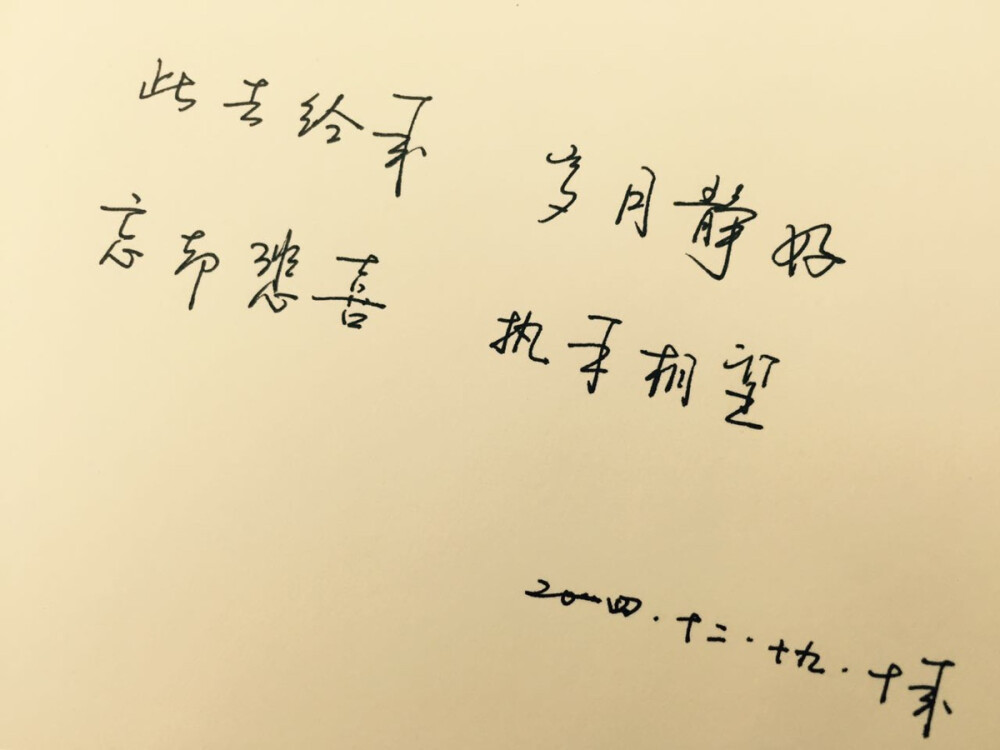 此去给
岁月静好
忘却悲喜
执手相望
20一四.十二.十九.十